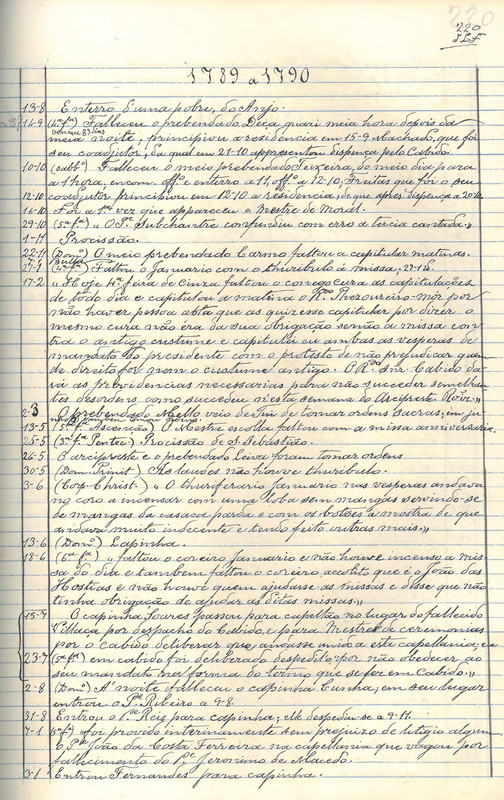 220
220
J.L.F
1789 a 1790
13-8 Enterro d'uma pobre, do Anjo.
14-9 (4ª fª) Falleceu o prebendado Deça quasi meia hora depois da
meia noite, principiou a residencia em 15-9 o Machado, que foi
seu coadjutor, da qual em 21-10 appresentou dispença pelo Cabido.
10-10 (sabbº) Falleceu o meio prebendado Teixeira, do meio dia para
a 1 hora, encom. offº e enterro a 11, offº a 12-10, Freitas que foi o seu
12-10 coadjutor principiou em 12-10 a residencia, de que apres. dispença a 20-10
16-10 Foi a 1ª vez que appareceu o Mestre de Moral.
29-10 (5ª fª) "O Pe Subchantre confundiu com erro a tercia cantada."
1-11 Procissão.
22-11 (Domº) O meio prebendado Carmo faltou a capitular matinas.
27-1 (4ª fª) Faltou o Januario com o thuribulo á missa, 27-1
17-2 "Hoje 4ª feira de Cinza faltou o conego cura as capitulações
de todo dia e capitulou a matina o Rdo Thezoureiro-mór por
não haver pessoa abta que as quizesse capitular por dizer o
mesmo cura não era da sua obrigação senão a missa con
tra o antigo custume e capitulei eu ambas as vesperas de
mandato do presidente com o protesto de não prejudicar quem
de direito for nem o custume antigo. O Rdo Snr. Cabido da
rá as providencias necessarias para não succeder semelhan
tes desordens como succedeu nesta semana do Arcipreste Roiz."
2-3 O prebendado Mello veio de Tui de tomar ordens sacras, em ju
13-5 (5ª f. Ascenção) O Mestre escolla faltou com a missa anniversaria.
25-5 (3ª f. Pentec.) Procissão de S. Sebastião.
26-5 O arcipreste e o prebendado Leiva foram tomar ordens
30-5 (Dom. Trinit.) As laudes não houve thuribulo.
3-6 (Corp. Christ.) "O thuriferario Januario nas vesperas andava
no côro a incensar com uma loba sem mangas servindo-se
de mangas da casaca parda e com os botões á mostra de que
andava muito indecente e tendo feito outras mais."
13-6 (Domº) Capinha.
18-6 (6ª fª) "faltou o coreiro Januario e não houve incenso a mis
sa do dia e tambem faltou o coreiro accolito que é o João das
Hostias e não houve quem ajudasse as missas e disse que não
tinha obrigação de ajudar as ditas missas."
15-7 O capinha Soares passou para capellão no lugar do fallecido
Villaça por despacho do Cabido, e para Mestre de ceremonias
por o Cabido deliberar que andasse unido a esta capellania; em
23-7 (5ª fª) em cabido foi deliberado despedil-o "por não obedecer ao
seu mandato na forma do termo que se fez em Cabido."
2-8 (Domº) A' noite falleceu o capinha Cunha; em seu lugar
entrou o Pe Ribeiro a 9-8.
31-8 Entrou o Pe Reis para capinha; elle despediu-se a 9-11.
7-1 (5ª f.) foi provido enterinamente sem prejuizo de litigio algum
o Pe João da Costa Ferreira na capellania que vagou por
fallecimento do Pe Jeronimo de Macedo.
3-1 Entrou Fernandes para capinha.